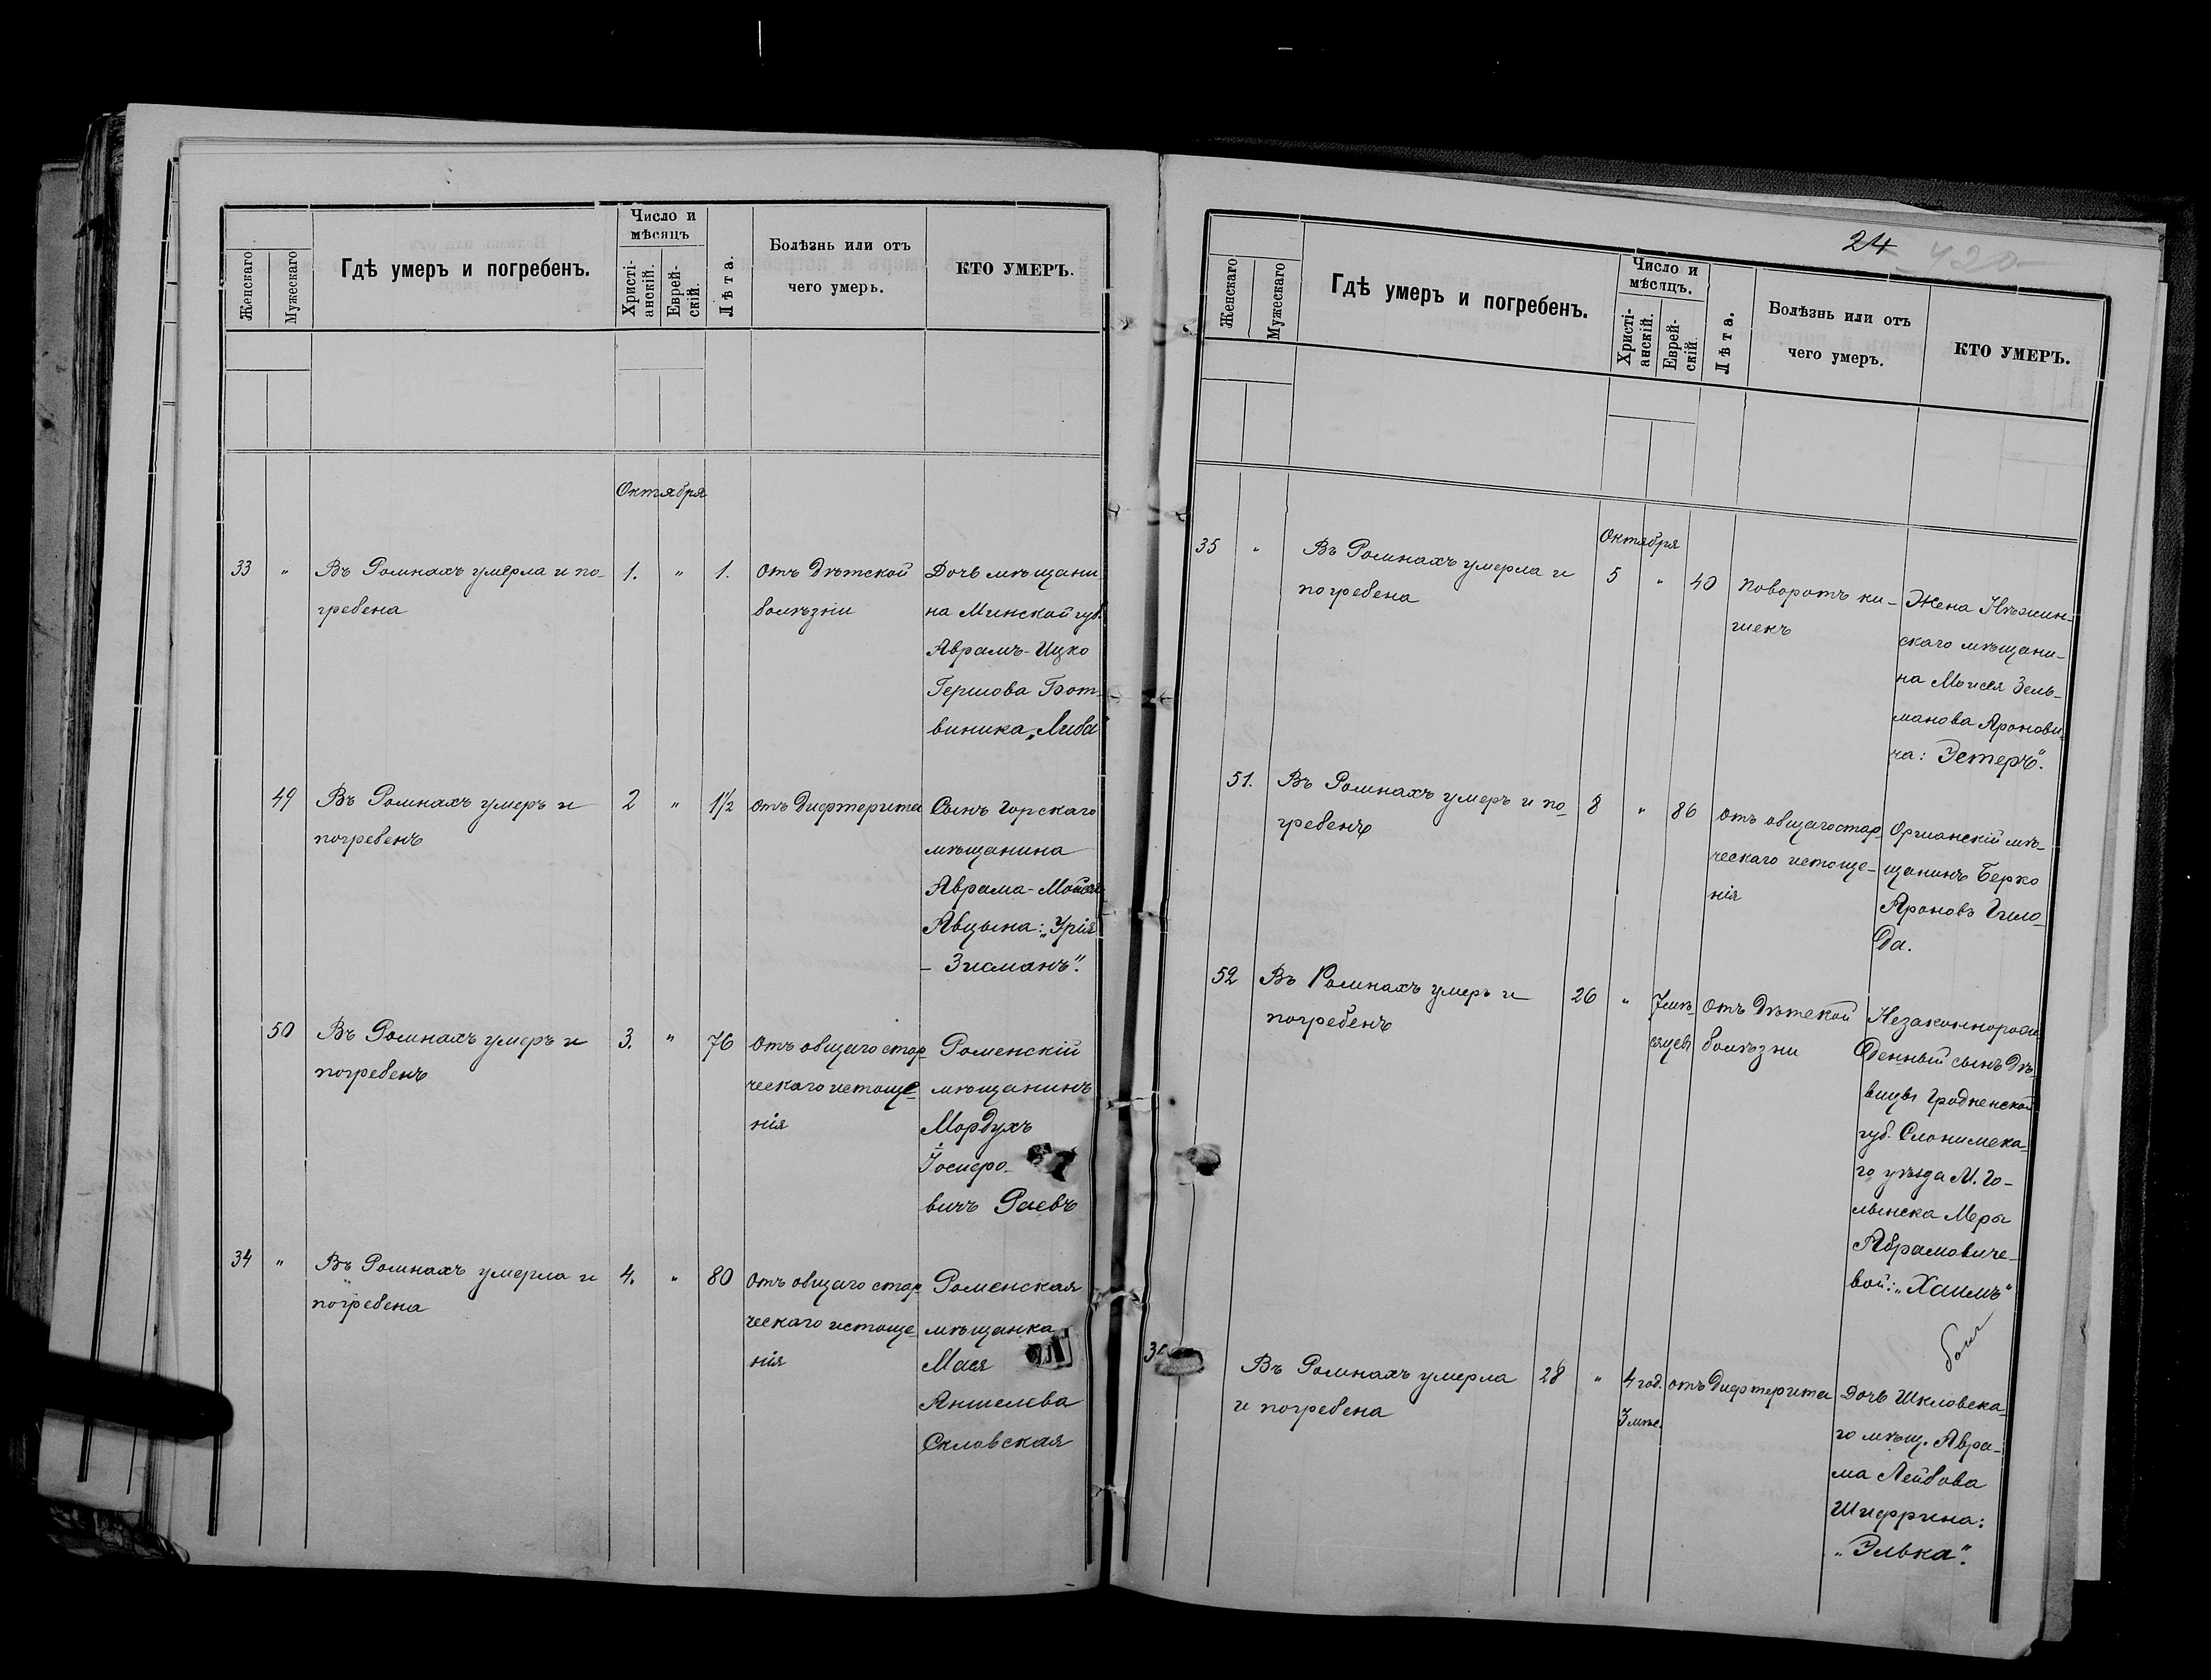 Женскаго
Мужескаго
Гдѣ умеръ и погребенъ.
Число и
мѣсяцъ
Христі-
анскій.
Еврей-
скій.
Лѣта.
Болѣзнь или отъ
чего умеръ.
КТО УМЕРЪ.
Октября
33 " Въ Ромнахъ умерла и по-
гребена
1. " 1.
отъ дѣтской
болѣзни
Дочь мѣщани
на Минской губ.
Аврамъ-Ицко
Гершова Бот-
виника „Либа"
49 Въ Ромнахъ умеръ и
погребенъ
2 " 1½
отъ дифтерита
Сынъ Горскаго
мѣщанина
Аврама-
Авцына: „Урія
- Зисманъ".
50 Въ Ромнахъ умеръ и
погребенъ
3. " 76
отъ общаго стар-
ческаго истоще-
нія
Роменскій
мѣщанинъ
Мордухъ
вичъ Раевъ
34 " Въ Ромнахъ умерла и
погребена
4. " 80
отъ общаго стар-
ческаго истоще-
нія
Роменская
мѣщанка
Мася
Аншелева
Скловская
24
420
Женскаго
Мужескаго
Гдѣ умеръ и погребенъ.
Число и
мѣсяцъ.
Христі-
анскій.
Еврей-
скій.
Лѣта.
Болѣзнь или отъ
чего умеръ.
КТО УМЕРЪ.
Октября
35 " Въ Ромнахъ умерла и
погребена
5 " 40
поворотъ ки-
шекъ
Жена Нѣжин-
скаго мѣщани-
на Моисея Зель-
манова Аронови-
ча: Эстеръ".
51. Въ Ромнахъ умеръ и по-
гребенъ
8 " 86
отъ общаго стар-
ческаго истоще-
нія
Оршанскій мѣ-
щанинъ Берко
Ароновъ Гило-
да.
52 Въ Ромнахъ умеръ и
погребенъ
26 " 7 мѣ-
сяцевъ
отъ дѣтской
болѣзни
Незаконнорож
денный сынъ дѣ-
вицы Гродненской
губ. Слонимска-
го уѣзда М. Го-
лынска Меры
Абрамовиче-
вой: „Хаимъ"
Въ Ромнахъ умерла
и погребена
28 " 4 год.
3 мѣс.
отъ дифтерита
Дочь Шкловска-
го мѣщ. Авра-
ма Лейбова
Шифрина:
„Элька".